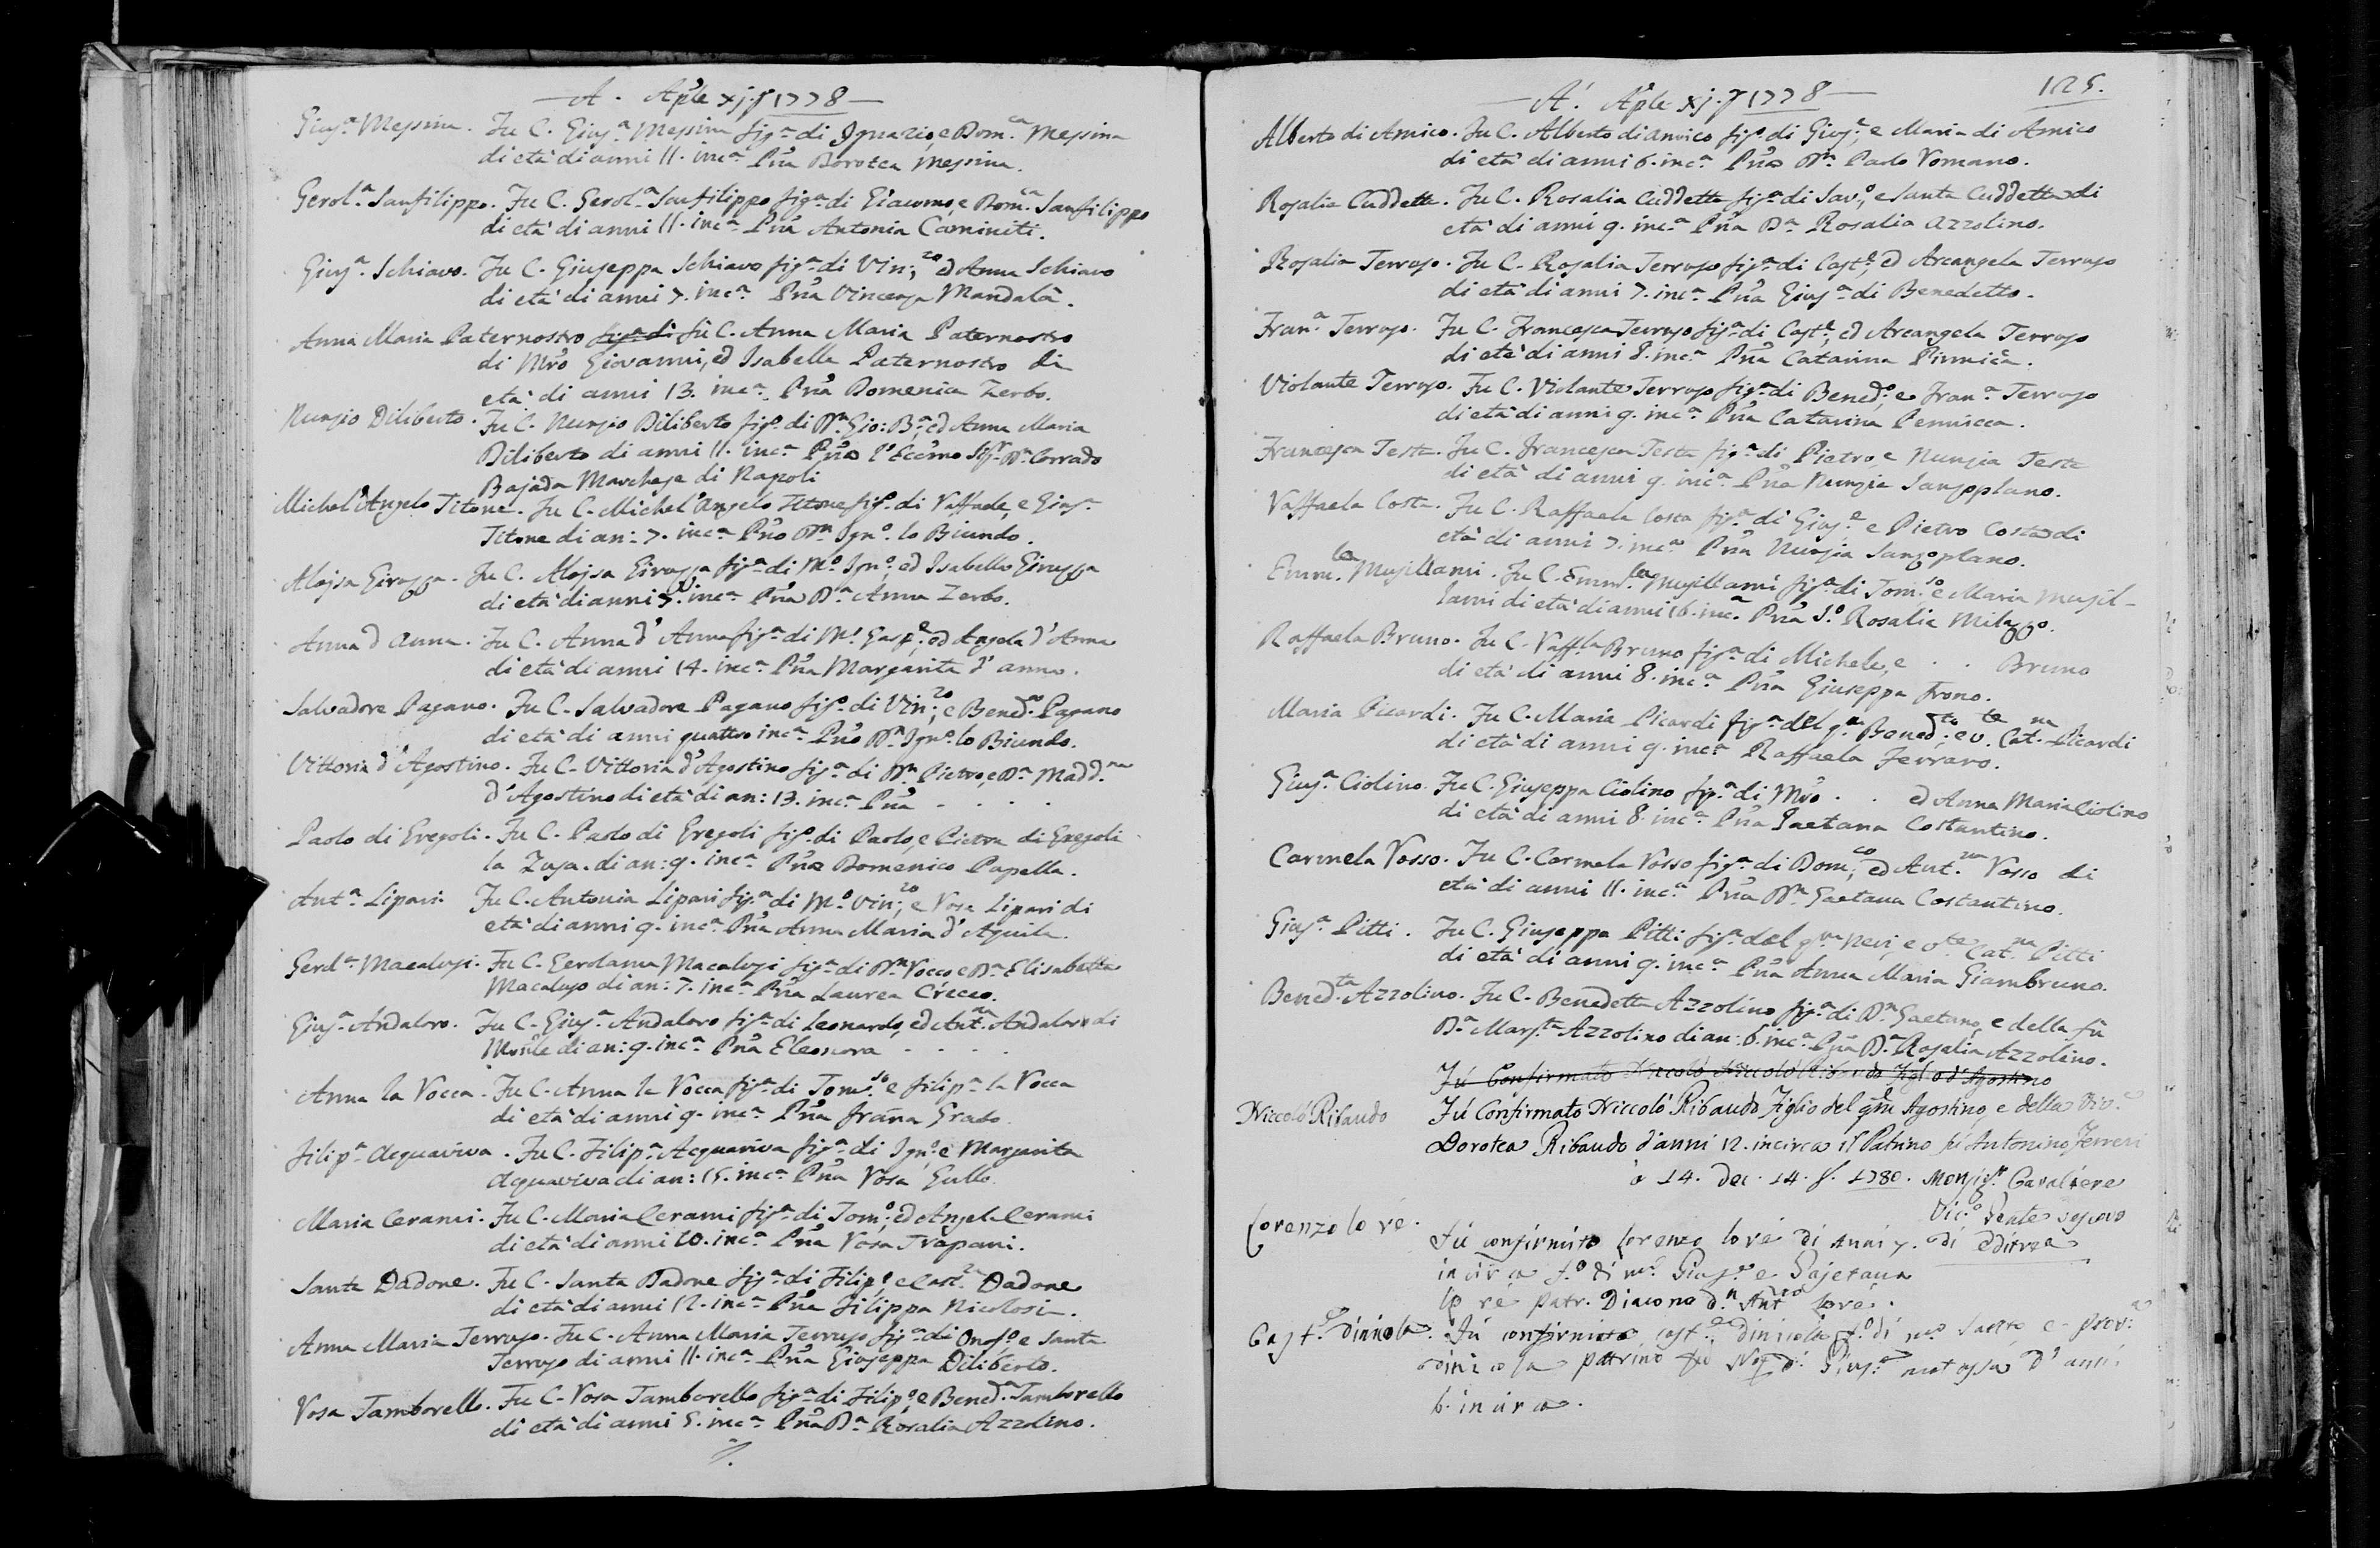 A. Aple xj. J 1778
Gius.a Messina. Fu C. Gius.a Messina fig.a di Ignazio, e Dom.ca Messina
di età di anni 11. inc.a Pna Dorotea Messina.
Gerol.a Sanfilippo. Fu C. Gerol.a Sanfilippo fig.a di Giacomo, e Dom.ca Sanfilippo
di età di anni 11. inc.a Pna Antonia Caminiti.
Gius.a Schiavo. Fu C. Giuseppa Schiavo fig.a di Vin.zo, ed Anna Schiavo
di età di anni 7. inc.a Pna Vincenza Mandalà.
Anna Maria Paternostro fig.a di fù C. Anna Maria Paternostro
di Mro Giovanni, ed Isabella Paternostro di
età di anni 13. inc.a Pna Domenica Zerbo.
Nunzio Diliberto. Fu C. Nunzio Diliberto fig.o di Dn Gio: Ba, ed Anna Maria
Diliberto di anni 11. inc.a Pno l'Eccmo Sig.r Dn Corrado
Bajada Marchese di Napoli
Michel'Angelo Titone. Fu C. Michel'Angelo Titone fig.o di Raffaele, e Gius.a
Titone di an: 7. inc.a Pno Dn Ign.o lo Biundo.
Alojsa Giragga. Fu C. Alojsa Giragga fig.a di M.o Ign.o, ed Isabella Giragga
di età di anni inc.a Pna D.a Anna Zerbo.
Anna d'anna. Fu C. Anna d'Anna fig.a di M.o Gasp.e, ed Angela d'Anna
di età di anni 14. inc.a Pna Margarita d'anna.
Salvadore Pagano. Fu C. Salvadore Pagano fig.o di Vin.zo, e Bened.a Pagano
di età di anni quattro inc.a Pno Dn Ign.o lo Biundo.
Vittoria d'Agostino. Fu C. Vittoria d'Agostino fig.a di Dn Pietro, e D.a Madd.na
d'Agostino di età di an: 13. inc.a Pna . . . .
Paolo di Gregoli. Fu C. Paolo di Gregoli fig.o di Paolo, e Pietra di Gregoli
la Zusa. di an: 9. inc.a Pno Domenico Papella.
Ant.a Lipari. Fu C. Antonia Lipari fig.a di M.o Vin.zo, e Rosa Lipari di
età di anni 9. inc.a Pna Anna Maria d'Aguila.
Gerol.a Macalusi. Fu C. Gerolama Macalusi fig.a di Dn Rocco e D.a Elisabetta
Macaluso di an: 7. inc.a Pna Laurea Crecco.
Gius.a Andaloro. Fu C. Gius.a Andaloro fig.a di Leonardo, ed Ant.na Andaloro di
Monle di an: 9. inc.a Pna Eleonora . . . .
Anna la Rocca. Fu C. Anna la Rocca fig.a di Tom.so e Filip.a la Rocca
di età di anni 9. inc.a Pna Frana Grado.
Filip.a Acquaviva. Fu C. Filip.a Acquaviva fig.a di Ign.o e Margarita
Acquaviva di an: 15. inc.a Pna Rosa Gullo.
Maria Cerami. Fu C. Maria Cerami fig.a di Tom.o, ed Angela Cerami
di età di anni 10. inc.a Pna Rosa Trapani.
Santa Dadone. Fu C. Santa Dadone fig.a di Filip.o, e Cat.na Dadone
di età di anni 12. inc.a Pna Filippa Nicolosi.
Anna Maria Terruso. Fu C. Anna Maria Terruso fig.a di Onof.o, e Santa
Terruso di anni 11. inc.a Pna Giuseppa Diliberto.
Rosa Tamborello. Fu C. Rosa Tamborello fig.a di Filip.o, e Bened.a Tamborello
di età di anni 5. inc.a Pna D.a Rosalia Azzolino.
A. Aple xj. J 1778
125.
Alberto di Amico. Fu C. Alberto di amico fig.o di Gius.e, e Maria di Amico
di età di anni 6. inc.a Pno Dn Paolo Romano.
Rosalia Cuddetta. Fu C. Rosalia Cuddetta fig.a di Sav.o, e Santa Cuddetta di
età di anni 9. inc.a Pna D.a Rosalia Azzolino.
Rosalia Terruso. Fu C. Rosalia Terruso fig.a di Cast.e, ed Arcangela Terruso
di età di anni 7. inc.a Pna Gius.a di Benedetto.
Fran.a Terruso. Fu C. Francesca Terruso fig.a di Cast.e, ed Arcangela Terruso
di età di anni 8. inc.a Pna Catarina Pinnica.
Violante Terruso. Fu C. Violante Terruso fig.a di Bened.o, e Fran.a Terruso
di età di anni 9. inc.a Pna Catarina Pennicca.
Francesca Testa. Fu C. Francesca Testa fig.a di Pietro, e Nunzia Testa
di età di anni 9. inc.a Pna Nunzia Sanzoplano.
Raffaela Costa. Fu C. Raffaela Costa fig.a di Gius.e e Pietro Costa di
età di anni 7. inc.a Pna Nunzia Sanzoplano.
Emm.la Musillami. Fu C. Emm.la Musillami fig.a di Tom.so e Maria Musil-
lami di età di anni 16. inc.a Pna S.o Rosalia Milazzo.
Raffaela Bruno. Fu C. Raff.la Bruno fig.a di Michele, e . . Bruno
di età di anni 8. inc.a Pna Giuseppa Frono.
Maria Picardi. Fu C. Maria Picardi fig.a del q.m Bened.to, e v.te Cat.na Picardi
di età di anni 9. inc.a Raffaela Ferraro.
Gius.a Ciolino. Fu C. Giuseppa Ciolino fig.a di Mro . . ed Anna Maria Ciolino
di età di anni 8. inc.a Pna Gaetana Costantino.
Carmela Rosso. Fu C. Carmela Rosso fig.a di Dom.co, ed Ant.na Rosso di
età di anni 11. inc.a Pna D.a Gaetana Costantino.
Gius.a Pitti. Fu C. Giuseppa Pitti fig.a del q.m Neri, e v.te Cat.na Pitti
di età di anni 9. inc.a Pna Anna Maria Giambruno.
Bened.ta Azzolino. Fu C. Benedetta Azzolino fig.a di Dn Gaetano, e della fù
D.a Marg.ta Azzolino di an: 6. inc.a Pna D.a Rosalia Azzolino.
Fú Confirmato Niccolò Ribaudo Figlio d'Agostino
Niccoló Ribaudo Fú Confirmato Niccoló Ribaudo Figlio del qdm Agostino, e della Viv.a
Dorotea Ribaudo d'anni 12. incirca il Patrino fú Antonino Ferreri
à 14. Dec. 14. J. 1780. Monsig.r Cavaliere
Vic.o
Lorenzo lo ré. Fú confirmato Lorenzo lo ré di anni 7.
incirca f.o di m.o Gius.e e Gajetana
lo ré patr. Diacono d.n Ant.no lo ré.
Cast.e dinicola. Fú confirmato cast.e dinicola f.o di m.o
dinicola patrino fú d'anni
6. incirca.